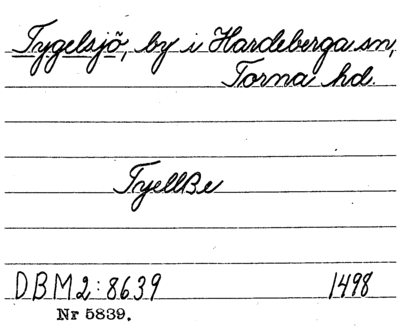 Tygelsjö, by i Hardeberga sn,
Torna hd.
Tyellße
DBM2:8639 1498
Nr 5839.